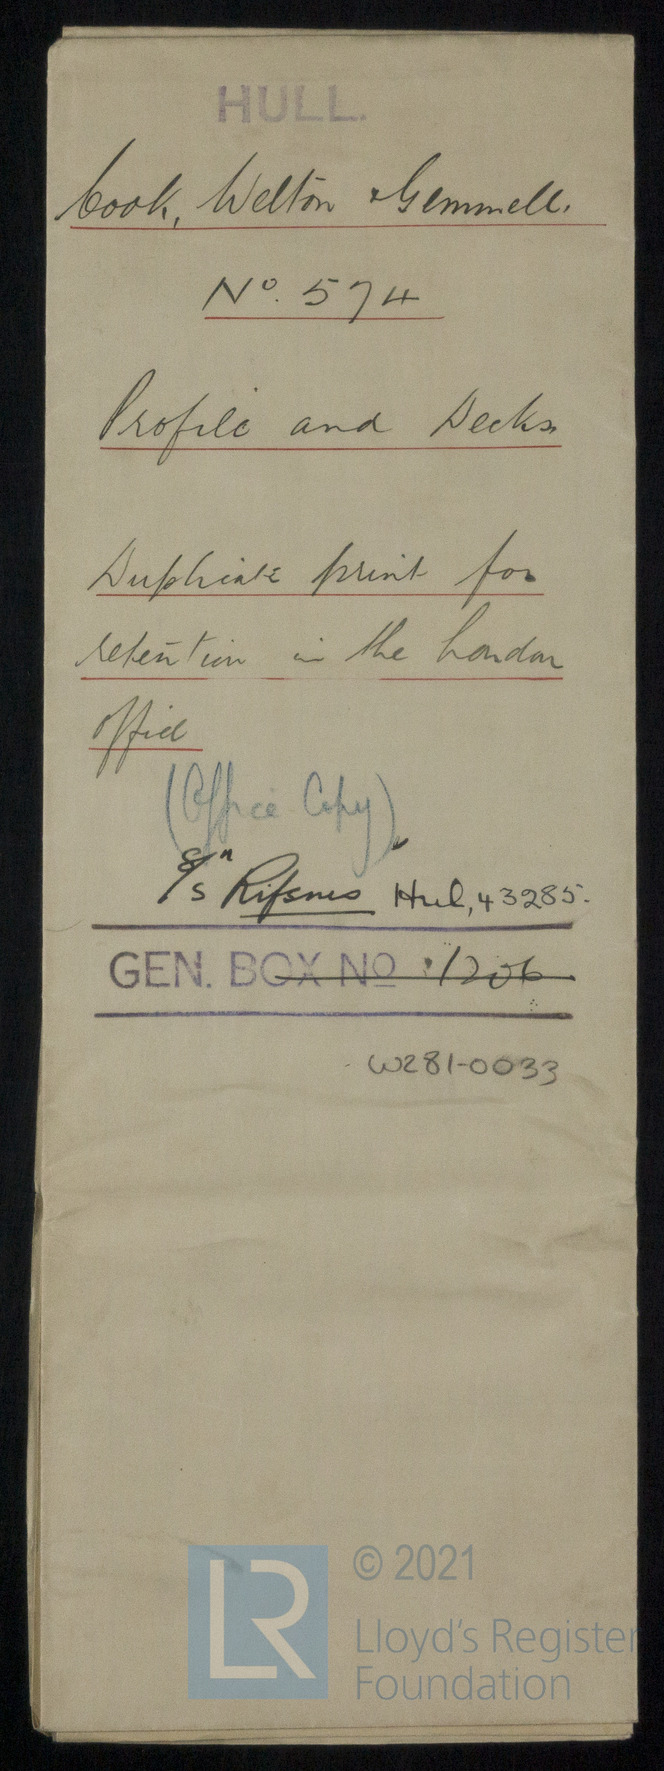 HULL.
Cook, Welton & Gemmell.
No. 574
Profile and Decks
Duplicate print for
retention in the London
office
(Office Copy)
S/S "Rifsnes" Hul, 43285.
GEN. BOX No 1206
W281-0033
LR
© 2021
Lloyd's Register
Foundation